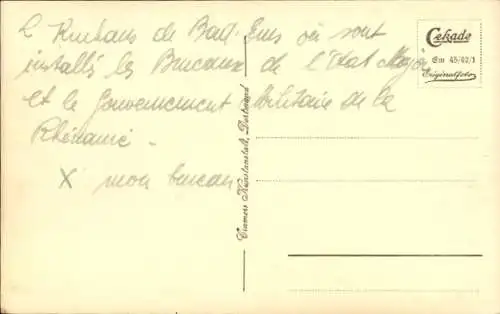 Le Kurhaus de Bad-Ems où sont
installés les Bureaux de l'Etat Major
et le Gouvernement Militaire de la
Rhénanie.
X mon bureau
Cramers Kunstanstalt, Dortmund
Cekade
Em 45/62/1
Originalfoto